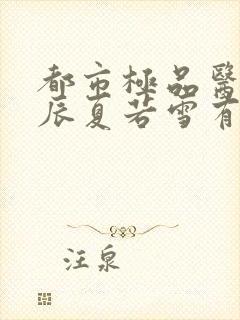 都市極品醫
辰夏若雪有
汪泉